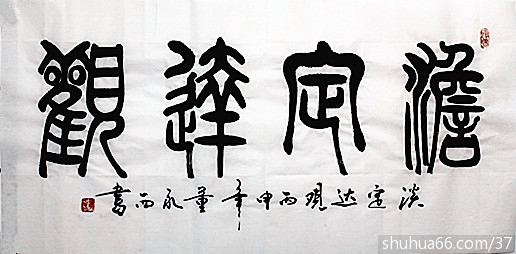 澹定達觀
淡定达观丙申年董永西書
shuhua66.com/37